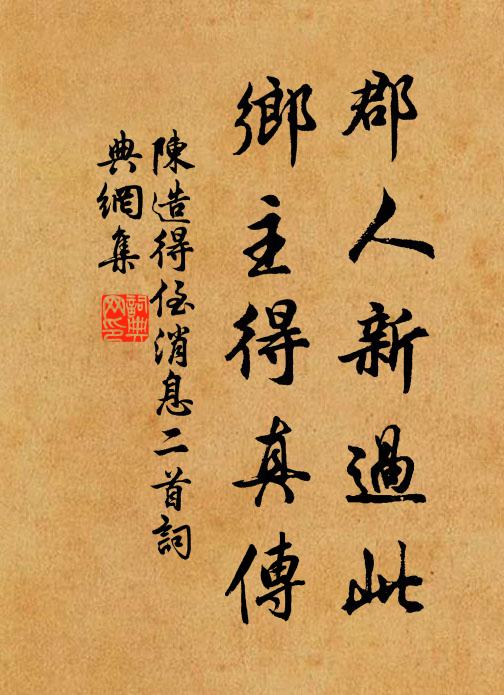 郡人新過此
鄉主得真傳
陳造得侄消息二首詞
典網集
詞典
网印